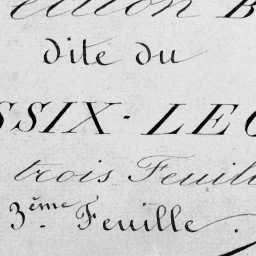 dite du
SSIX-LEG
trois Feuill
3ème Feuille.